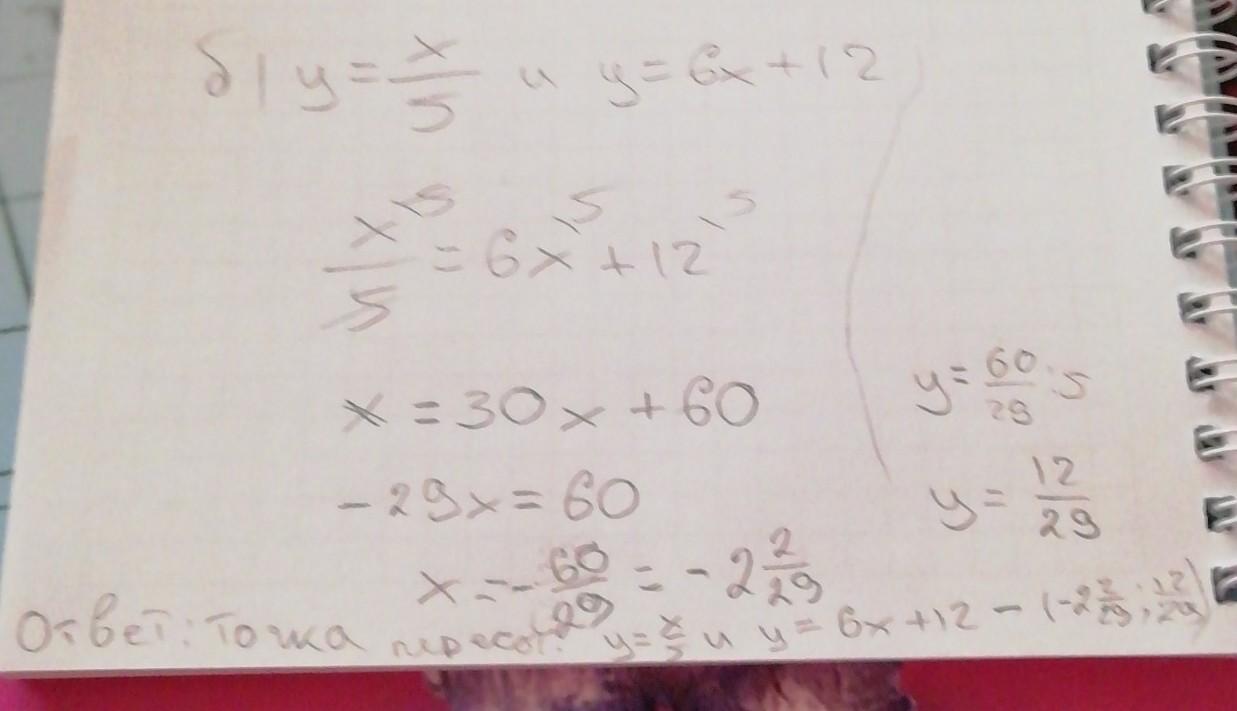 б) y = x/5 и y = 6x + 12
x\5/5 = 6x\5 + 12\5
x = 30x + 60
-29x = 60
x = -60/29 = -2 2/29
y = 60/29 : 5
y = 12/29
Ответ: точка y = x/5 и y = 6x + 12 - (-2 2/29; 12/29)